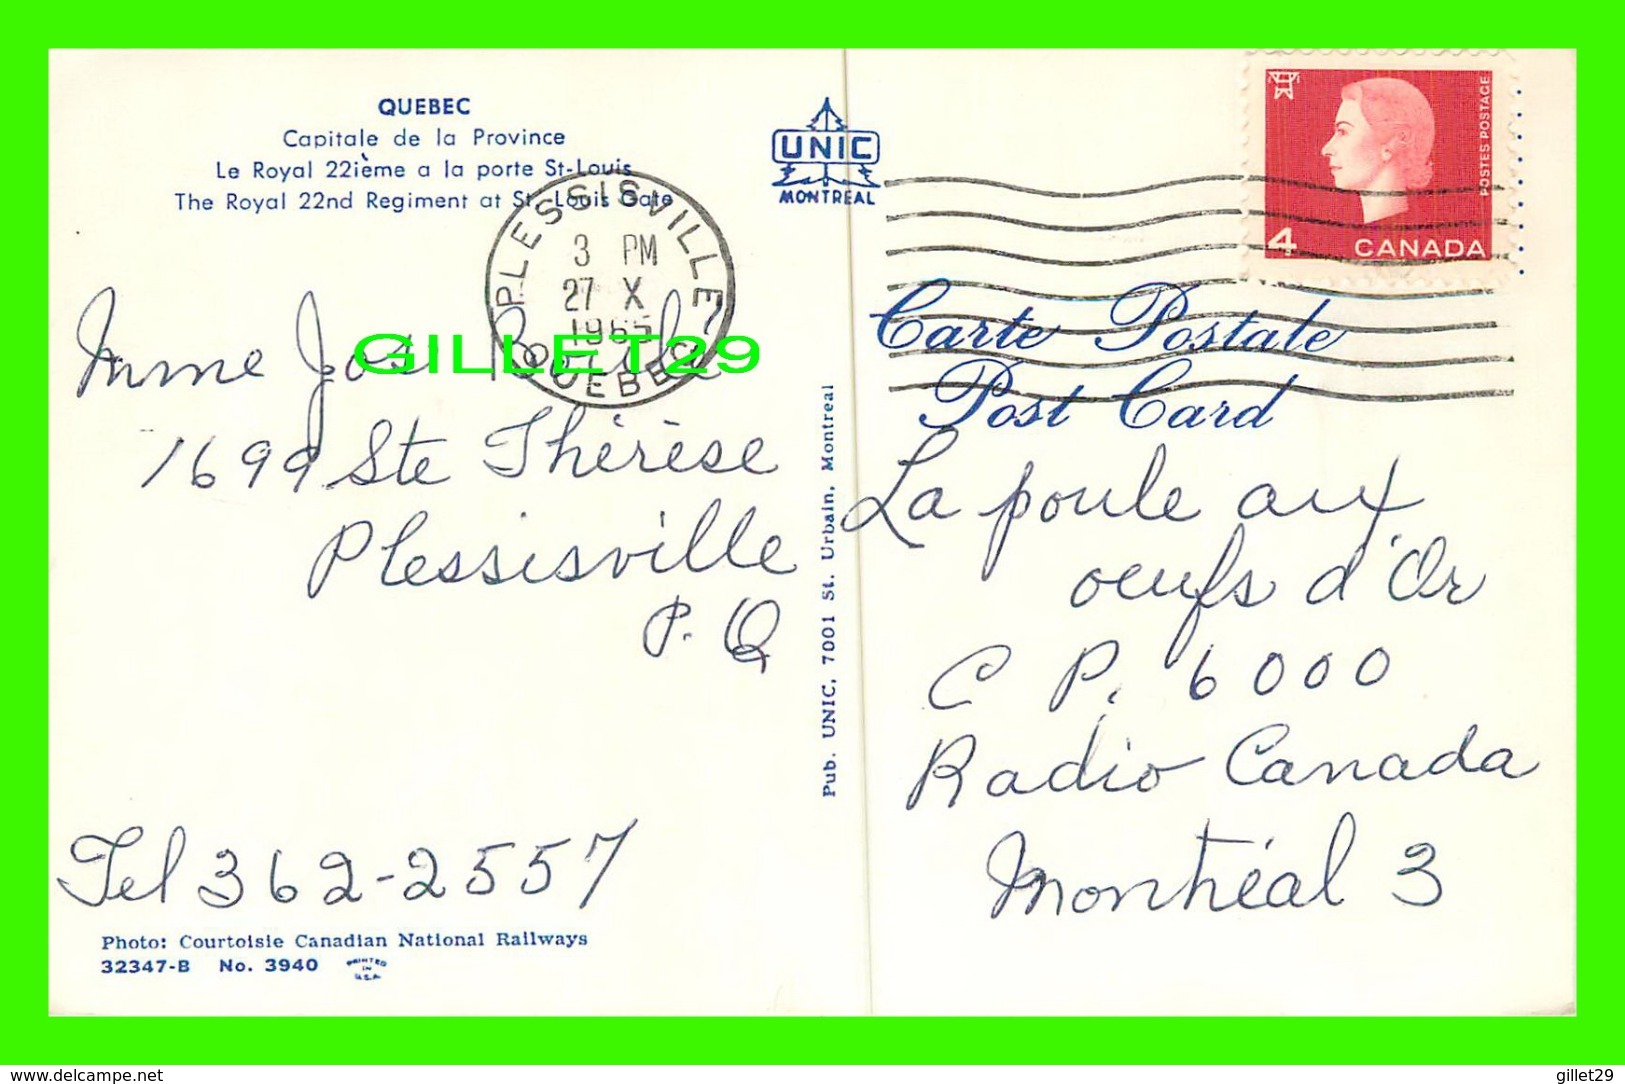 QUEBEC
Capitale de la Province
Le Royal 22ième a la porte St-Louis
The Royal 22nd Regiment at St. Louis Gate
UNIC
MONTREAL
POSTES POSTAGE
4 CANADA
PLESSISVILLE
3 PM
27 X
1965
QUEBEC
GILLET29
Carte Postale
Post Card
Mme Jos
1699 Ste Thérèse
Plessisville
P. Q
Tel 362-2557
Photo: Courtoisie Canadian National Railways
32347-B No. 3940 PRINTED IN U.S.A.
Pub. UNIC, 7001 St. Urbain, Montreal
La poule aux
oeufs d'Or
C P. 6000
Radio Canada
Montréal 3
https://www.delcampe.net
gillet29